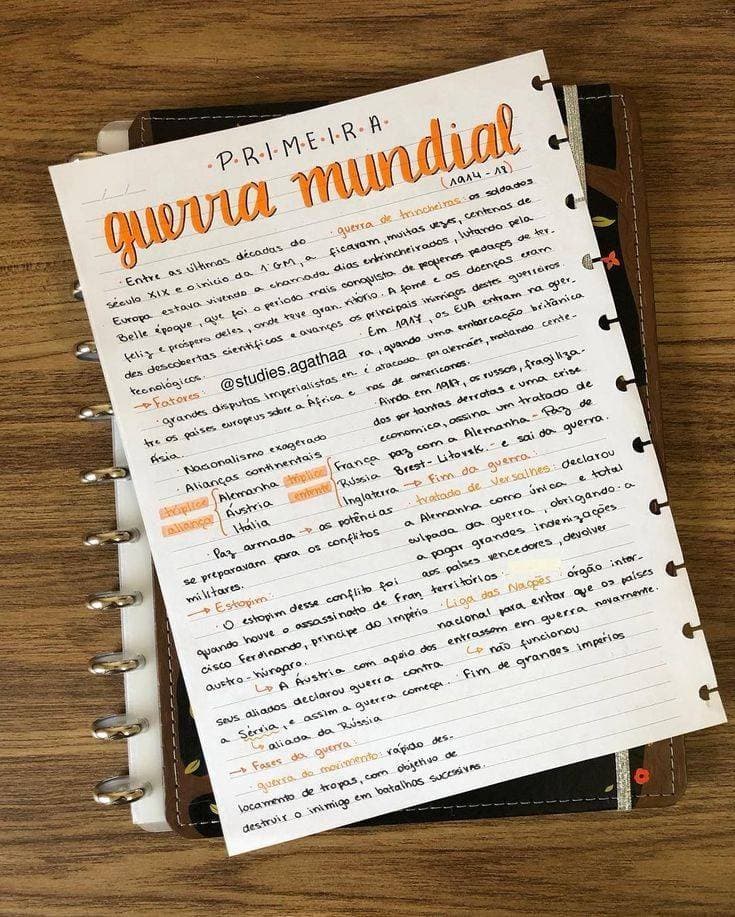 / /
·P·R·I·M·E·I·R·A·
guerra mundial
(1914 - 18)
· Entre as últimas décadas do
século XIX e o início da 1ª GM, a
Europa estava vivendo a chamada
Belle époque, que foi o período mais
feliz e próspero deles, onde teve gran-
des descobertas científicas e avanços
tecnológicos.
→ Fatores:
· grandes disputas imperialistas en-
tre os países europeus sobre a África e
Ásia.
· Nacionalismo exagerado
· Alianças continentais
tríplice aliança { Alemanha
Áustria
Itália
tríplice entente { França
Rússia
Inglaterra
· Paz armada → as potências
se preparavam para os conflitos
militares.
→ Estopim:
· O estopim desse conflito foi
quando houve o assassinato de Fran
cisco Ferdinando, príncipe do império
austro-húngaro.
↳ A Áustria com apoio dos
seus aliados declarou guerra contra
a Sérvia, e assim a guerra começa.
↳ aliada da Rússia
→ Fases da guerra:
· guerra do movimento: rápido des-
locamento de tropas, com objetivo de
destruir o inimigo em batalhas sucessivas.
· guerra de trincheiras: os soldados
ficaram, muitas vezes, centenas de
dias entrincheirados, lutando pela
conquista de pequenos pedaços de ter-
ritório. A fome e as doenças eram
os principais inimigos destes guerreiros.
· Em 1917, os EUA entram na guer-
ra, quando uma embarcação britânica
é atacada por alemães, matando cente-
nas de americanos.
· Ainda em 1917, os russos, fragiliza-
dos por tantas derrotas e uma crise
econômica, assina um tratado de
paz com a Alemanha - Paz de
Brest-Litovsk - e sai da guerra.
→ Fim da guerra:
· tratado de Versalhes: declarou
a Alemanha como única e total
culpada da guerra, obrigando-a
a pagar grandes indenizações
aos países vencedores, devolver
territórios.
· Liga das Nações: órgão inter-
nacional para evitar que os países
entrassem em guerra novamente.
↳ não funcionou
· Fim de grandes impérios
@studies.agathaa